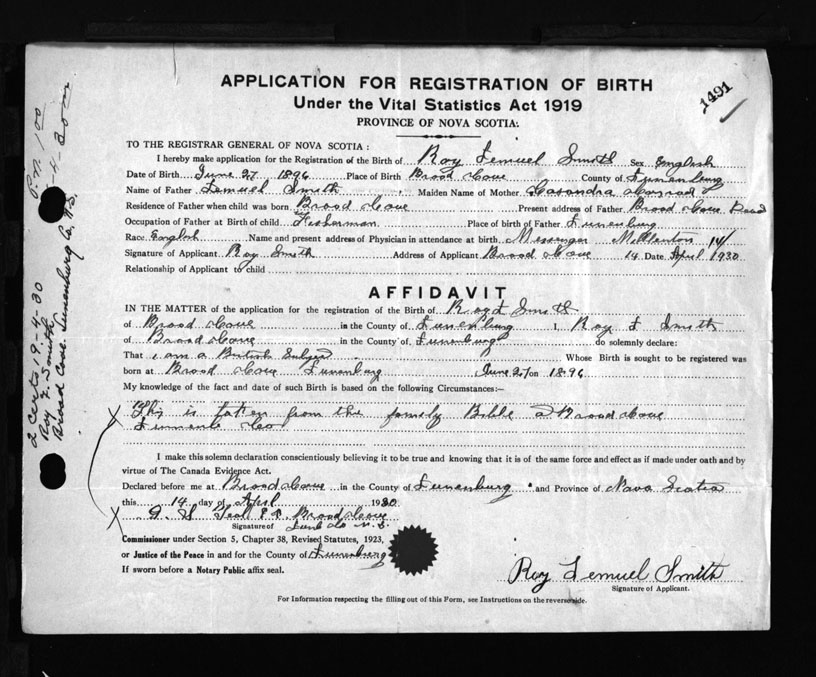 APPLICATION FOR REGISTRATION OF BIRTH
Under the Vital Statistics Act 1919
PROVINCE OF NOVA SCOTIA.
1491
TO THE REGISTRAR GENERAL OF NOVA SCOTIA :
I hereby make application for the Registration of the Birth of Roy Lemuel Smith Sex English
Date of Birth June 27 1896 Place of Birth Broad Cove County of Lunenburg
Name of Father Lemuel Smith Maiden Name of Mother Casandra Conrad
Residence of Father when child was born Broad Cove Present address of Father Broad Cove Dead
Occupation of Father at Birth of child Fisherman Place of birth of Father Lunenburg
Race English Name and present address of Physician in attendance at birth Messenger
Signature of Applicant Roy Smith Address of Applicant Broad Cove 14 Date April 1930
Relationship of Applicant to child
AFFIDAVIT
IN THE MATTER of the application for the registration of the Birth of Roy L Smith
of Broad Cove in the County of Lunenburg I, Roy L Smith
of Broad Cove in the County of Lunenburg do solemnly declare:
That I am a British Subject Whose Birth is sought to be registered was
born at Broad Cove Lunenburg June 27 on 1896
My knowledge of the fact and date of such Birth is based on the following Circumstances:—
This is taken from the family Bible a Broad Cove
Co
I make this solemn declaration conscientiously believing it to be true and knowing that it is of the same force and effect as if made under oath and by
virtue of The Canada Evidence Act.
Declared before me at Broad Cove in the County of Lunenburg and Province of Nova Scotia
this 14 day of April 1930
Teal Broad Cove
Signature of Lunb Co N.S.
Commissioner under Section 5, Chapter 38, Revised Statutes, 1923,
or Justice of the Peace in and for the County of Lunenburg
If sworn before a Notary Public affix seal.
Roy Lemuel Smith
Signature of Applicant.
For Information respecting the filling out of this Form, see Instructions on the reverse side.
2 Certs 19-4-30
Roy L. Smith
Broad Cove. Lunenburg Co. N.S.
P.N. 1.00